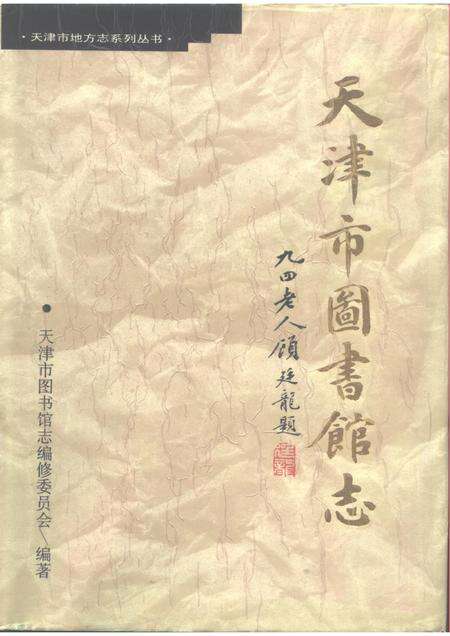 ·天津市地方志系列丛书·
天津市圖書館志
九四老人顾廷龍題
●天津市图书馆志编修委员会\编著